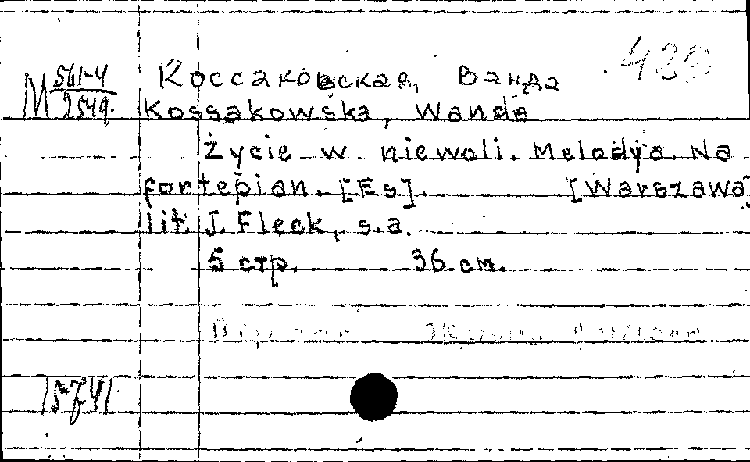 M 561-4
2549.
Коссаковская, Ванда
Kossakowska, Wanda
Życie w niewoli. Melodya. Na
fortepian. [Es]. [Warszawa]
lit. J. Fleck, s.a.
5 стр. 36 см.